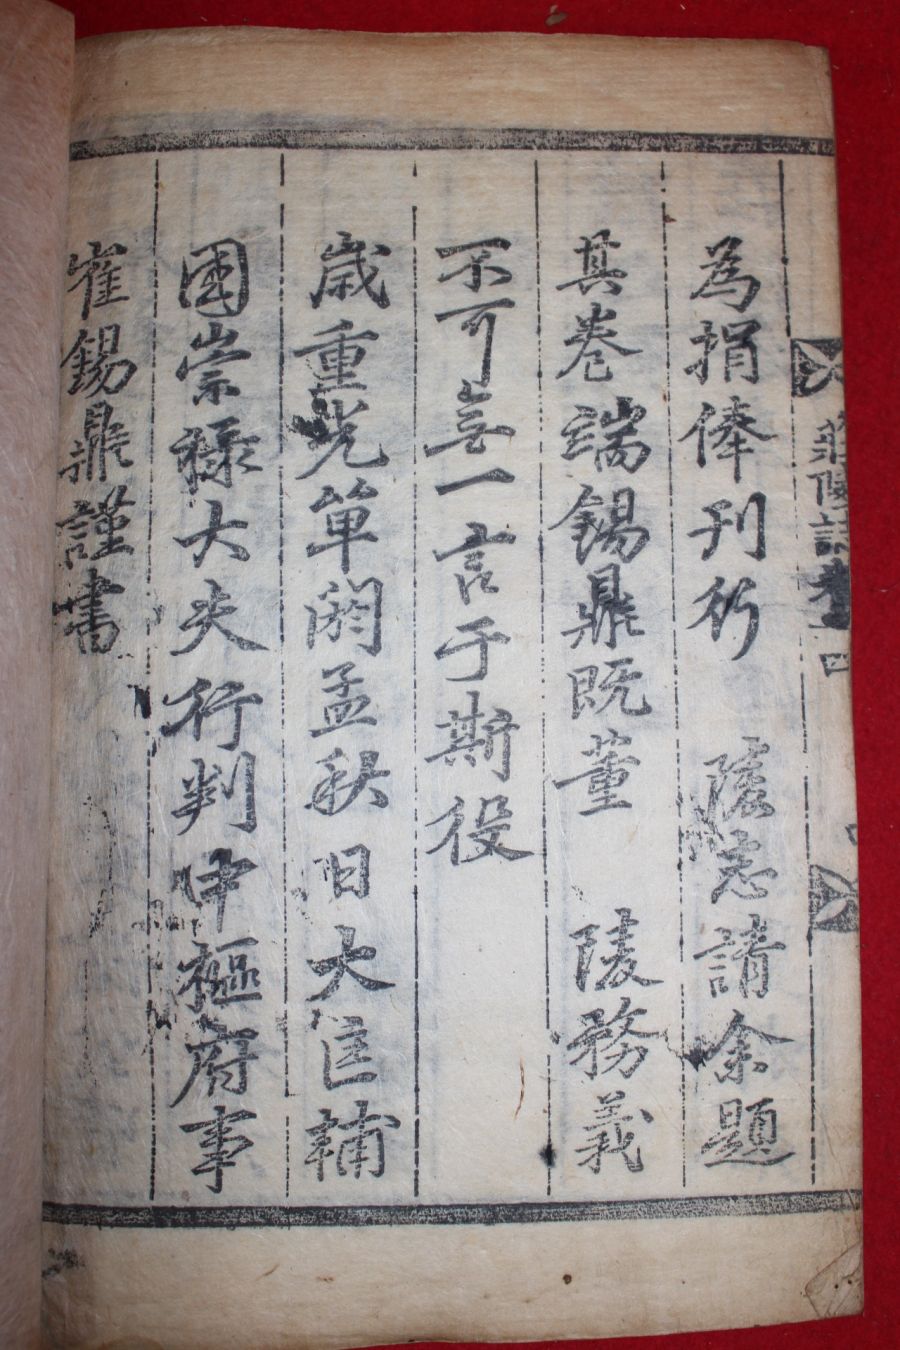 莊陵誌 四
為捐俸刊行 陵志請余題
其卷端錫鼎既董 陵務義
不可無一言于斯役
歲重光單閼孟秋日大匡輔
國崇祿大夫行判中樞府事
崔錫鼎謹書